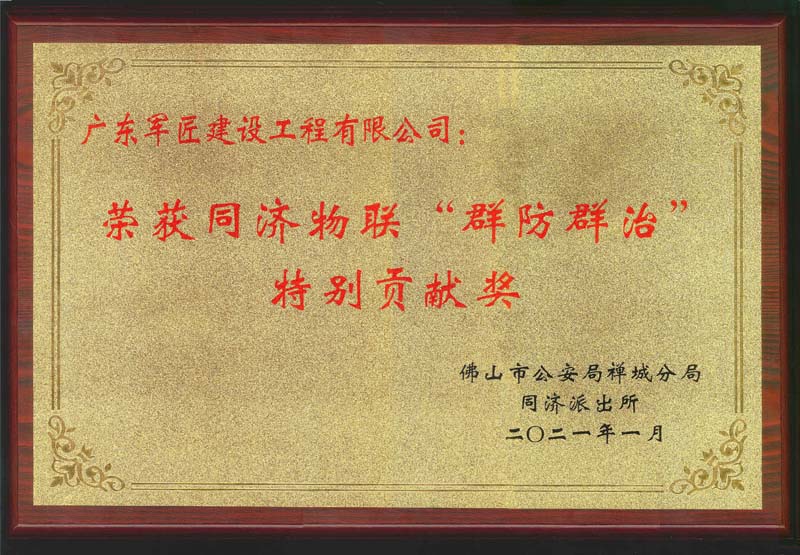 广东军匠建设工程有限公司：
荣获同济物联“群防群治”
特别贡献奖
佛山市公安局禅城分局
同济派出所
二〇二一年一月